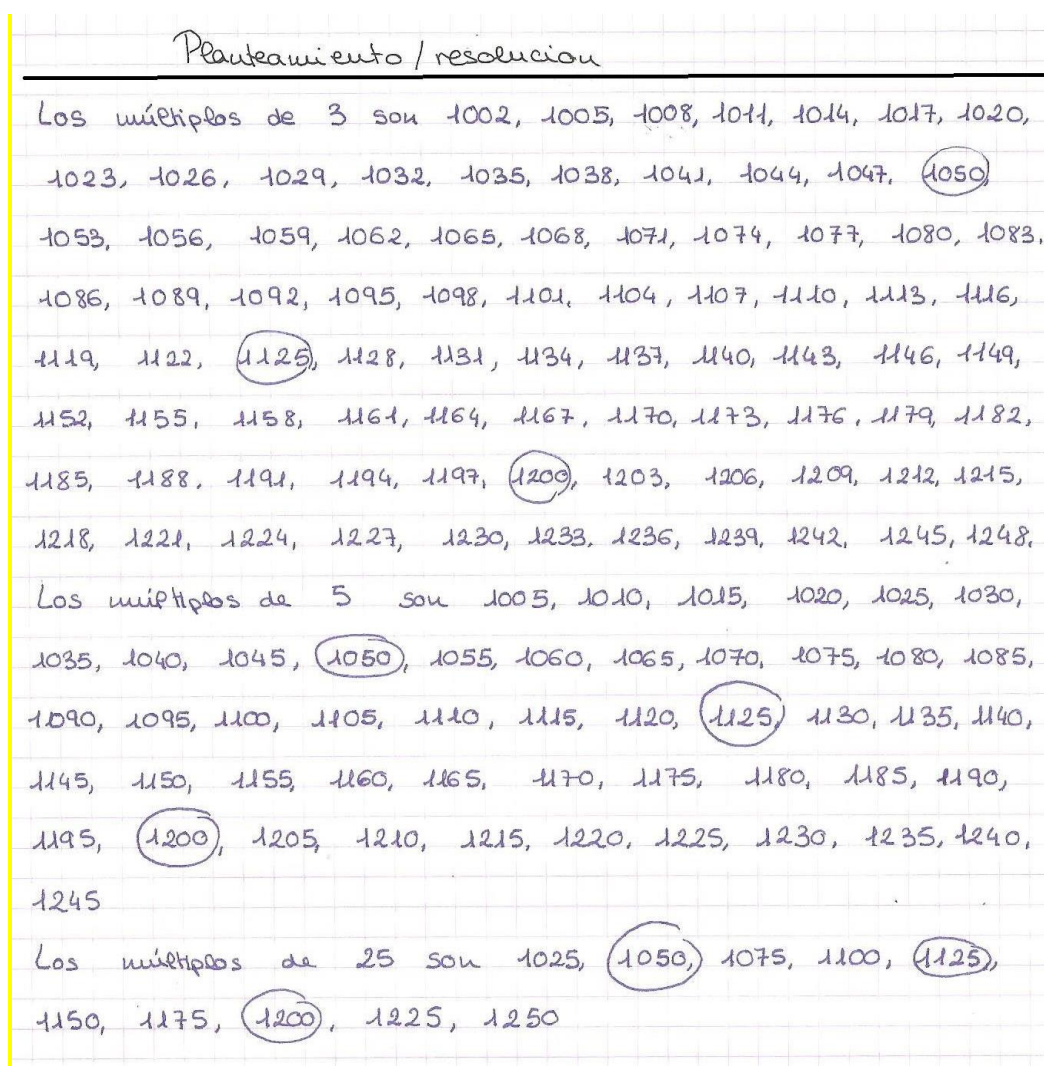 Planteamiento / resolucion
Los múltiplos de 3 son 1002, 1005, 1008, 1011, 1014, 1017, 1020,
1023, 1026, 1029, 1032, 1035, 1038, 1041, 1044, 1047, 1050,
1053, 1056, 1059, 1062, 1065, 1068, 1071, 1074, 1077, 1080, 1083,
1086, 1089, 1092, 1095, 1098, 1101, 1104, 1107, 1110, 1113, 1116,
1119, 1122, 1125, 1128, 1131, 1134, 1137, 1140, 1143, 1146, 1149,
1152, 1155, 1158, 1161, 1164, 1167, 1170, 1173, 1176, 1179, 1182,
1185, 1188, 1191, 1194, 1197, 1200, 1203, 1206, 1209, 1212, 1215,
1218, 1221, 1224, 1227, 1230, 1233, 1236, 1239, 1242, 1245, 1248.
Los múltiplos de 5 son 1005, 1010, 1015, 1020, 1025, 1030,
1035, 1040, 1045, 1050, 1055, 1060, 1065, 1070, 1075, 1080, 1085,
1090, 1095, 1100, 1105, 1110, 1115, 1120, 1125, 1130, 1135, 1140,
1145, 1150, 1155, 1160, 1165, 1170, 1175, 1180, 1185, 1190,
1195, 1200, 1205, 1210, 1215, 1220, 1225, 1230, 1235, 1240,
1245
Los múltiplos de 25 son 1025, 1050, 1075, 1100, 1125,
1150, 1175, 1200, 1225, 1250